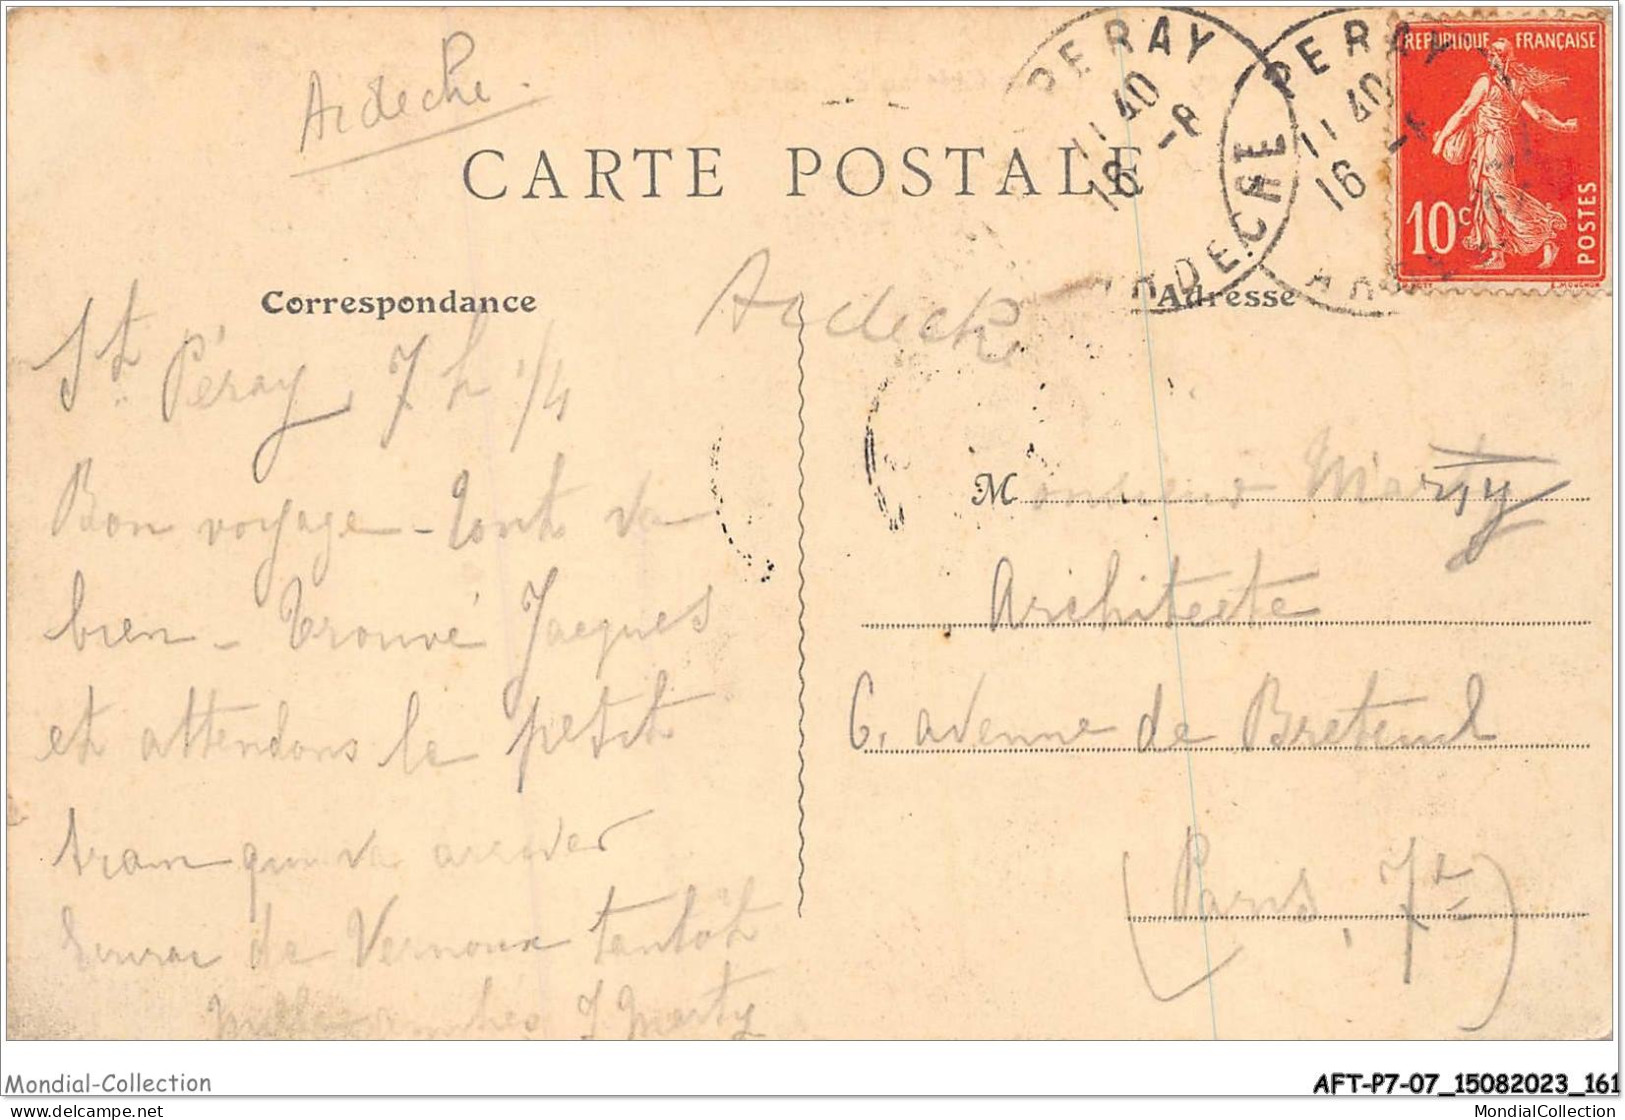 Ardèche.
PERAY
11 40
16 -8
ARDECHE
PERAY
11 40
16 -8
REPUBLIQUE FRANÇAISE
10c
POSTES
E. MOUCHON
CARTE POSTALE
Correspondance
Adresse
Ardèche
St Péray, 7 h 1/4
Bon voyage - Tout va
bien - Trouvé Jacques
et attendons le petit
tram qui va arriver
de Vernoux tantôt
J Marty
Monsieur Marty
Architecte
6, avenue de Breteuil
(Paris, 7e)
Mondial-Collection
AFT-P7-07_15082023_161
delcampe.net
MondialCollection